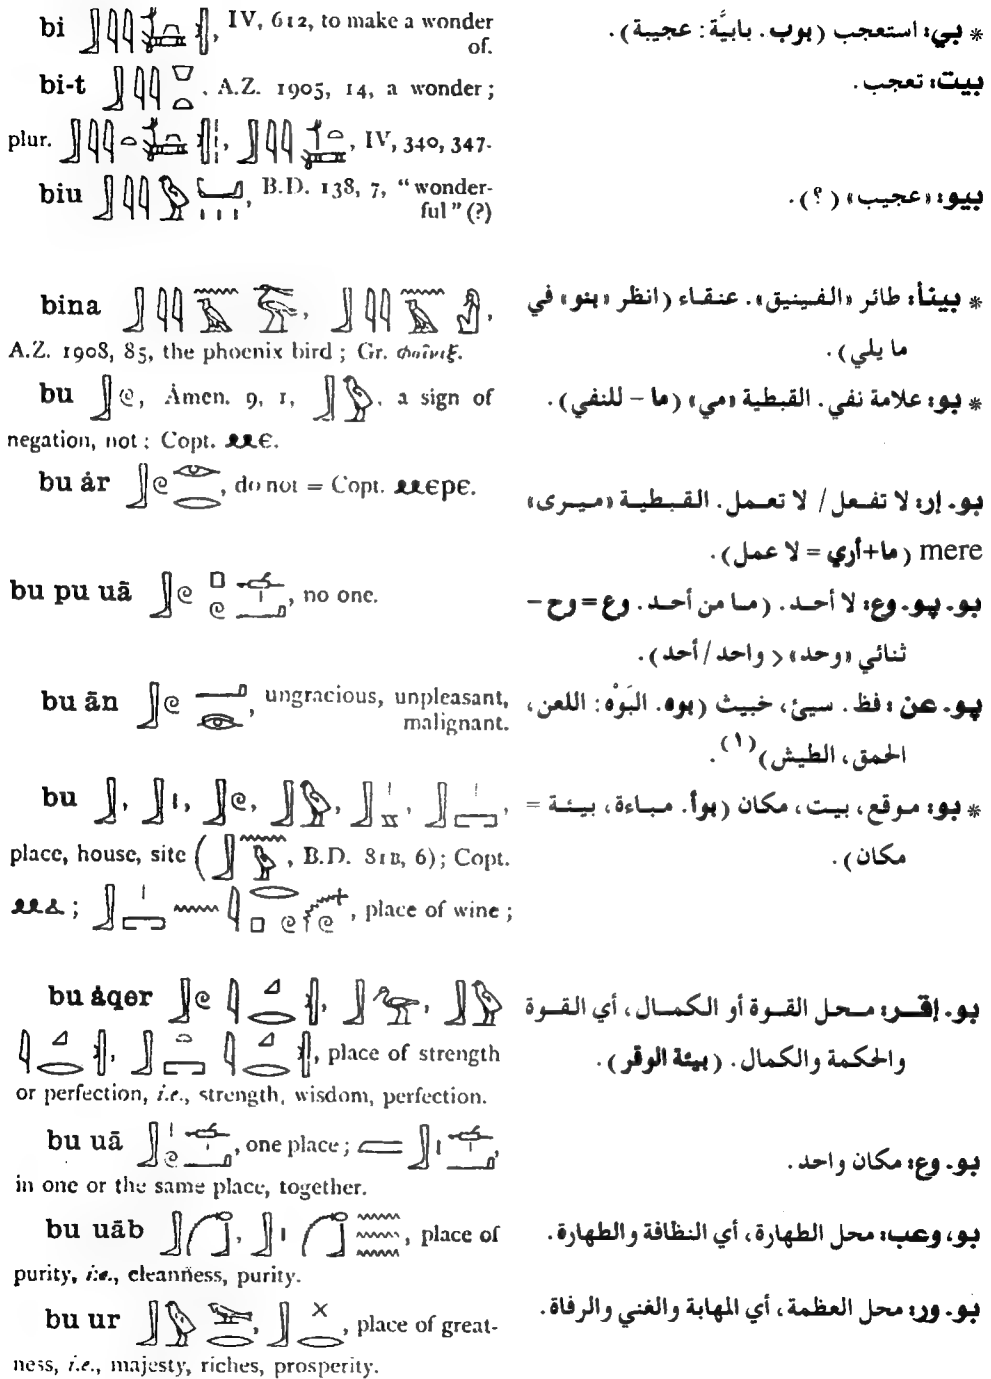 bi , IV, 612, to make a wonder of.
bi-t , A.Z. 1905, 14, a wonder;
plur. , , IV, 340, 347.
biu , B.D. 138, 7, "wonder-
ful" (?)
bina , ,
A.Z. 1908, 85, the phoenix bird; Gr. φοῖνιξ.
bu , Åmen. 9, 1, , a sign of
negation, not; Copt. ⲙⲉ.
bu år , do not = Copt. ⲙⲉⲣⲉ.
bu pu uā , no one.
bu ān , ungracious, unpleasant,
malignant.
bu , , , , , ,
place, house, site ( , B.D. 81B, 6); Copt.
ⲙⲁ; , place of wine;
bu åqer , , 
, , place of strength
or perfection, i.e., strength, wisdom, perfection.
bu uā , one place; ,
in one or the same place, together.
bu uāb , , place of
purity, i.e., cleanness, purity.
bu ur , , place of great-
ness, i.e., majesty, riches, prosperity.
* بي: استعجب (بوب. بابيَّة: عجيبة).
بيت: تعجب.
بيو: «عجيب» (؟).
* بينأ: طائر «الفينيق». عنقاء (انظر «بنو» في
ما يلي).
* بو: علامة نفي. القبطية «مي» (ما – للنفي).
بو. إر: لا تفعل / لا تعمل. القبطية «ميرى»
mere (ما+أري = لا عمل).
بو. پو. وع: لا أحد. (ما من أحد. وع = وح –
ثنائي «وحد» < واحد / أحد).
پو. عن: فظ. سيئ، خبيث (بوه. البَوْه: اللعن،
الحمق، الطيش)(١).
* بو: موقع، بيت، مكان (بوأ. مباءة، بيئة =
مكان).
بو. إقر: محل القوة أو الكمال، أي القوة
والحكمة والكمال. (بيئة الوقر).
بو. وع: مكان واحد.
بو، وعب: محل الطهارة، أي النظافة والطهارة.
بو. ور: محل العظمة، أي المهابة والغني والرفاة.